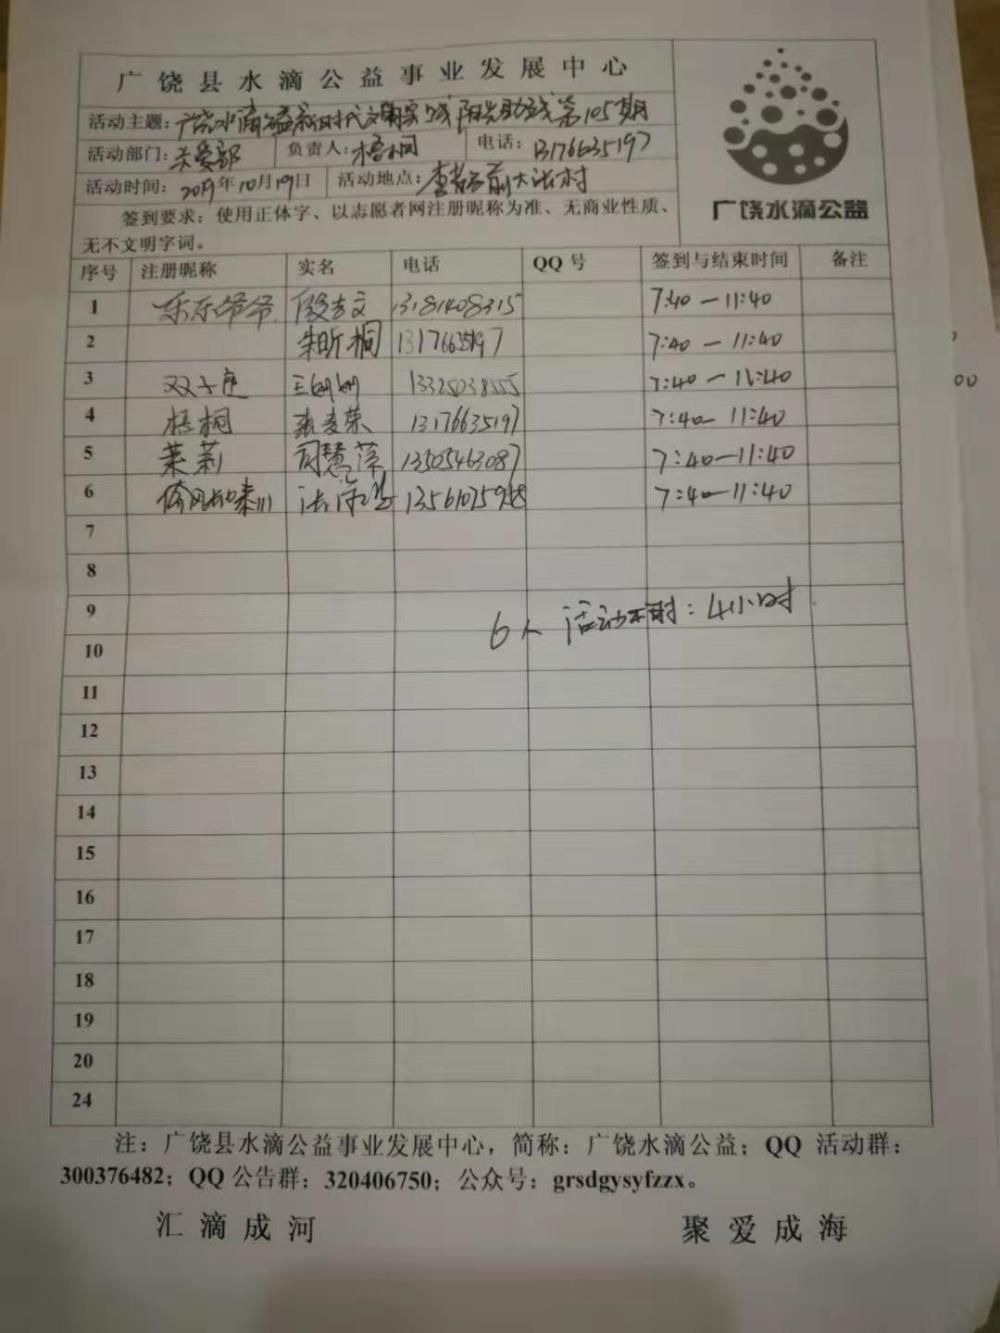 广饶县水滴公益事业发展中心
活动主题：广饶水滴公益新时代文明实践 阳光助残第105期
活动部门：关爱部 负责人：梧桐 电话：13176635197
活动时间：2019年10月19日 活动地点：前大张村
签到要求：使用正体字、以志愿者网注册昵称为准、无商业性质、
无不文明字词。
广饶水滴公益
序号 注册昵称 实名 电话 QQ号 签到与结束时间 备注
1 乐乐爷爷 段吉文 13181408315 7:40—11:40
2 朱昕桐 13176635197 7:40—11:40
3 双子座 王姗姗 7:40—11:40
4 梧桐 张麦荣 13176635197 7:40—11:40
5 茉莉 司慧萍 13505463087 7:40—11:40
6 7:40—11:40
7
8
9
6人 活动用时：4小时
10
11
12
13
14
15
16
17
18
19
20
24
注：广饶县水滴公益事业发展中心，简称：广饶水滴公益；QQ 活动群：
300376482；QQ 公告群：320406750；公众号：grsdgysyfzzx。
汇滴成河 聚爱成海